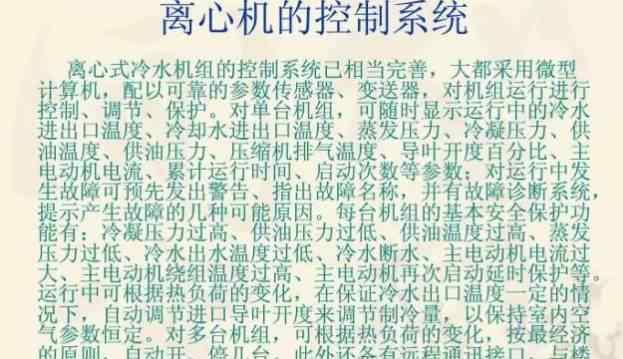 离心机的控制系统
离心式冷水机组的控制系统已相当完善，大都采用微型
计算机，配以可靠的参数传感器、变送器，对机组运行进行
控制、调节、保护。对单台机组，可随时显示运行中的冷水
进出口温度、冷却水进出口温度、蒸发压力、冷凝压力、供
油温度、供油压力、压缩机排气温度、导叶开度百分比、主
电动机电流、累计运行时间、启动次数等参数；对运行中发
生故障可预先发出警告、指出故障名称，并有故障诊断系统，
提示产生故障的几种可能原因。每台机组的基本安全保护功
能有：冷凝压力过高、供油压力过低、供油温度过高、蒸发
压力过低、冷水出水温度过低、冷水断水、主电动机电流过
大、主电动机绕组温度过高、主电动机再次启动延时保护等。
运行中可根据热负荷的变化，在保证冷水出口温度一定的情
况下，自动调节进口导叶开度来调节制冷量，以保持室内空
气参数恒定。对多台机组，可根据热负荷的变化，按最经济
的原则，自动开、停几台。此外还备有远程通讯接口，与楼